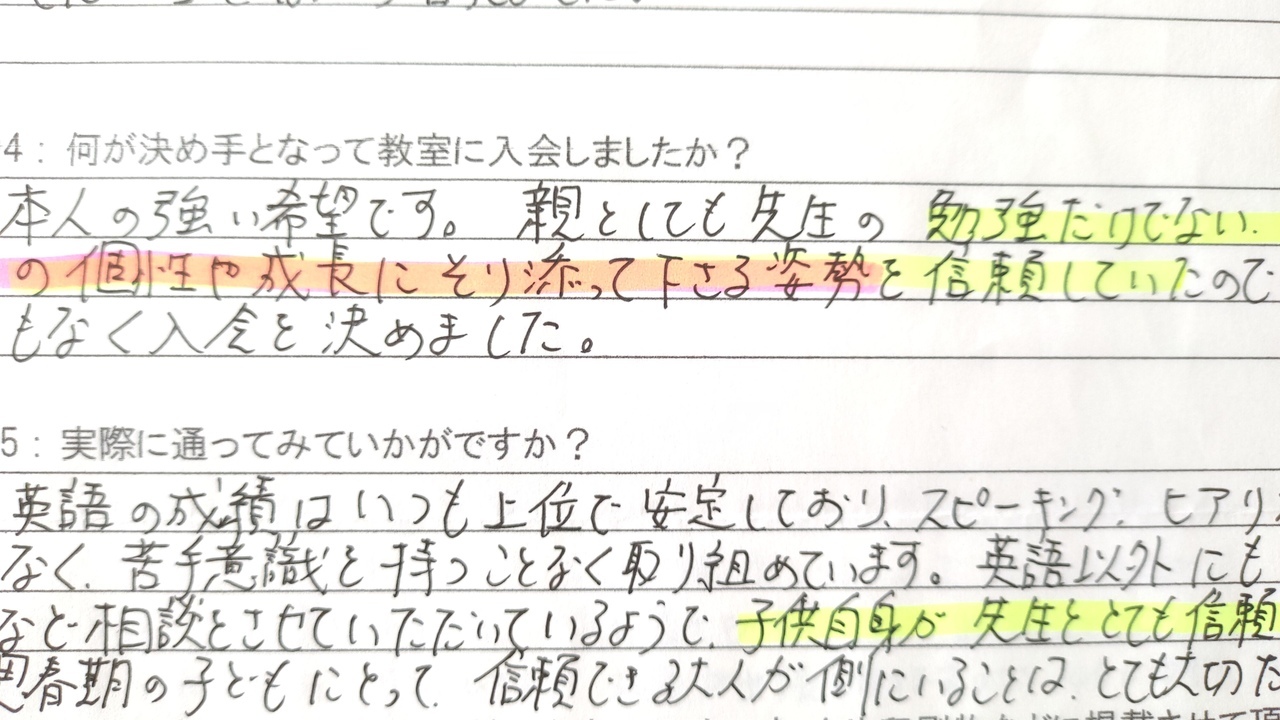 4：何が決め手となって教室に入会しましたか？
本人の強い希望です。 親としても先生の 勉強だけでない
の個性や成長にそり添って下さる姿勢を信頼していたので
もなく入会を決めました。
5：実際に通ってみていかがですか？
英語の成績はいつも上位で安定しており、スピーキング、ヒアリ
なく、苦手意識を持つことなく取り組めています。英語以外にも
など相談をさせていただいているようで、子供自身が先生をとても信頼
思春期の子どもにとって、信頼できる大人が側にいることは、とても大切だ